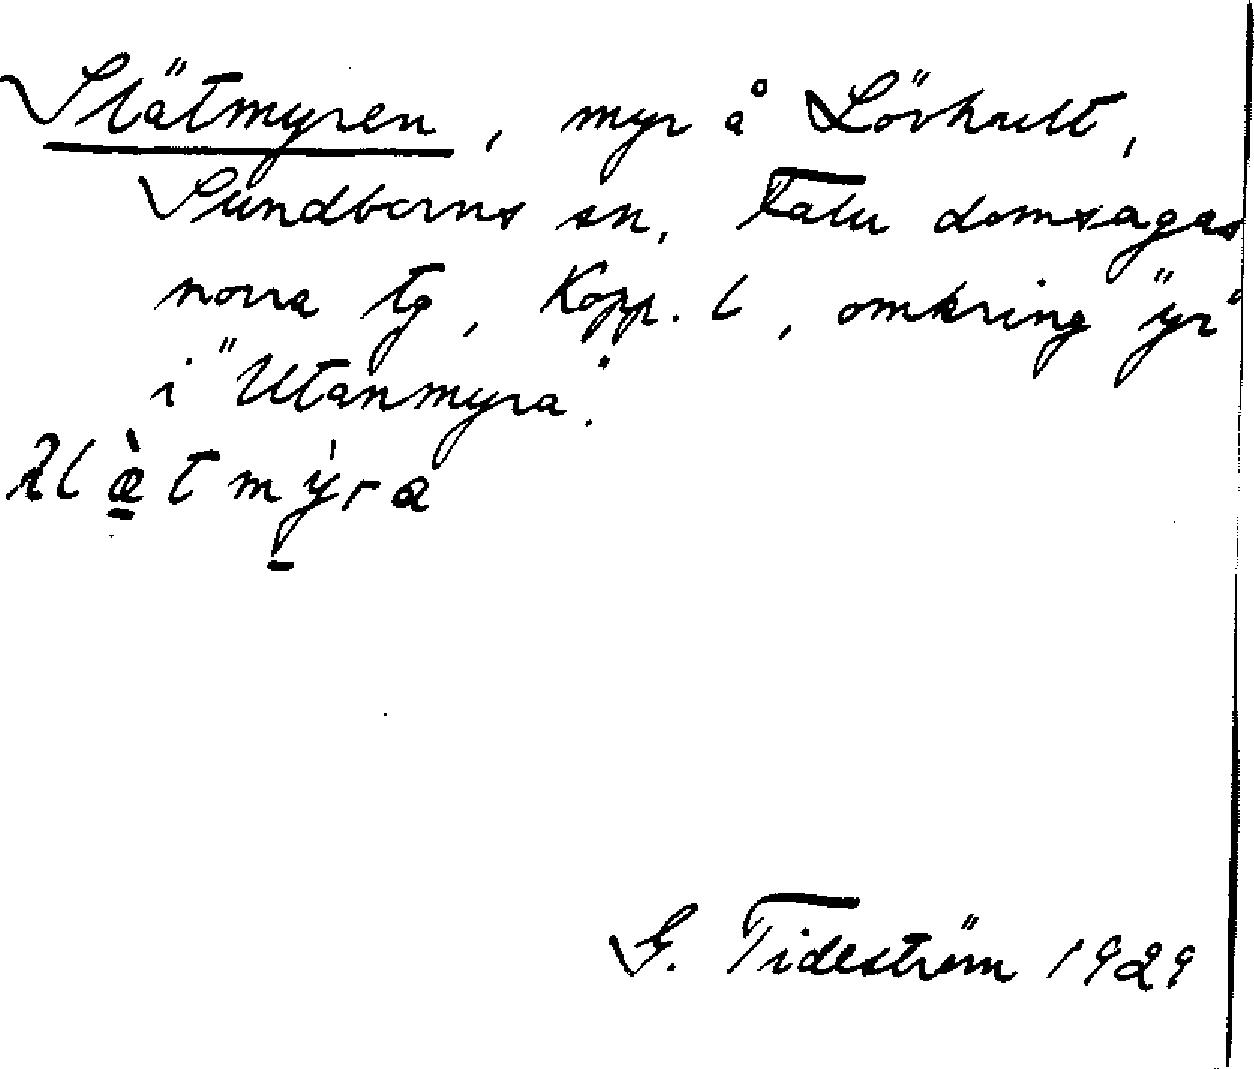 Slätmyren, myr å Lövhult,
Sundborns sn, Falu domsagas
norra tg, Kopp. l, omkring "yr"
i "Utanmyra".
slæ̀tmýra
G. Tideström 1929